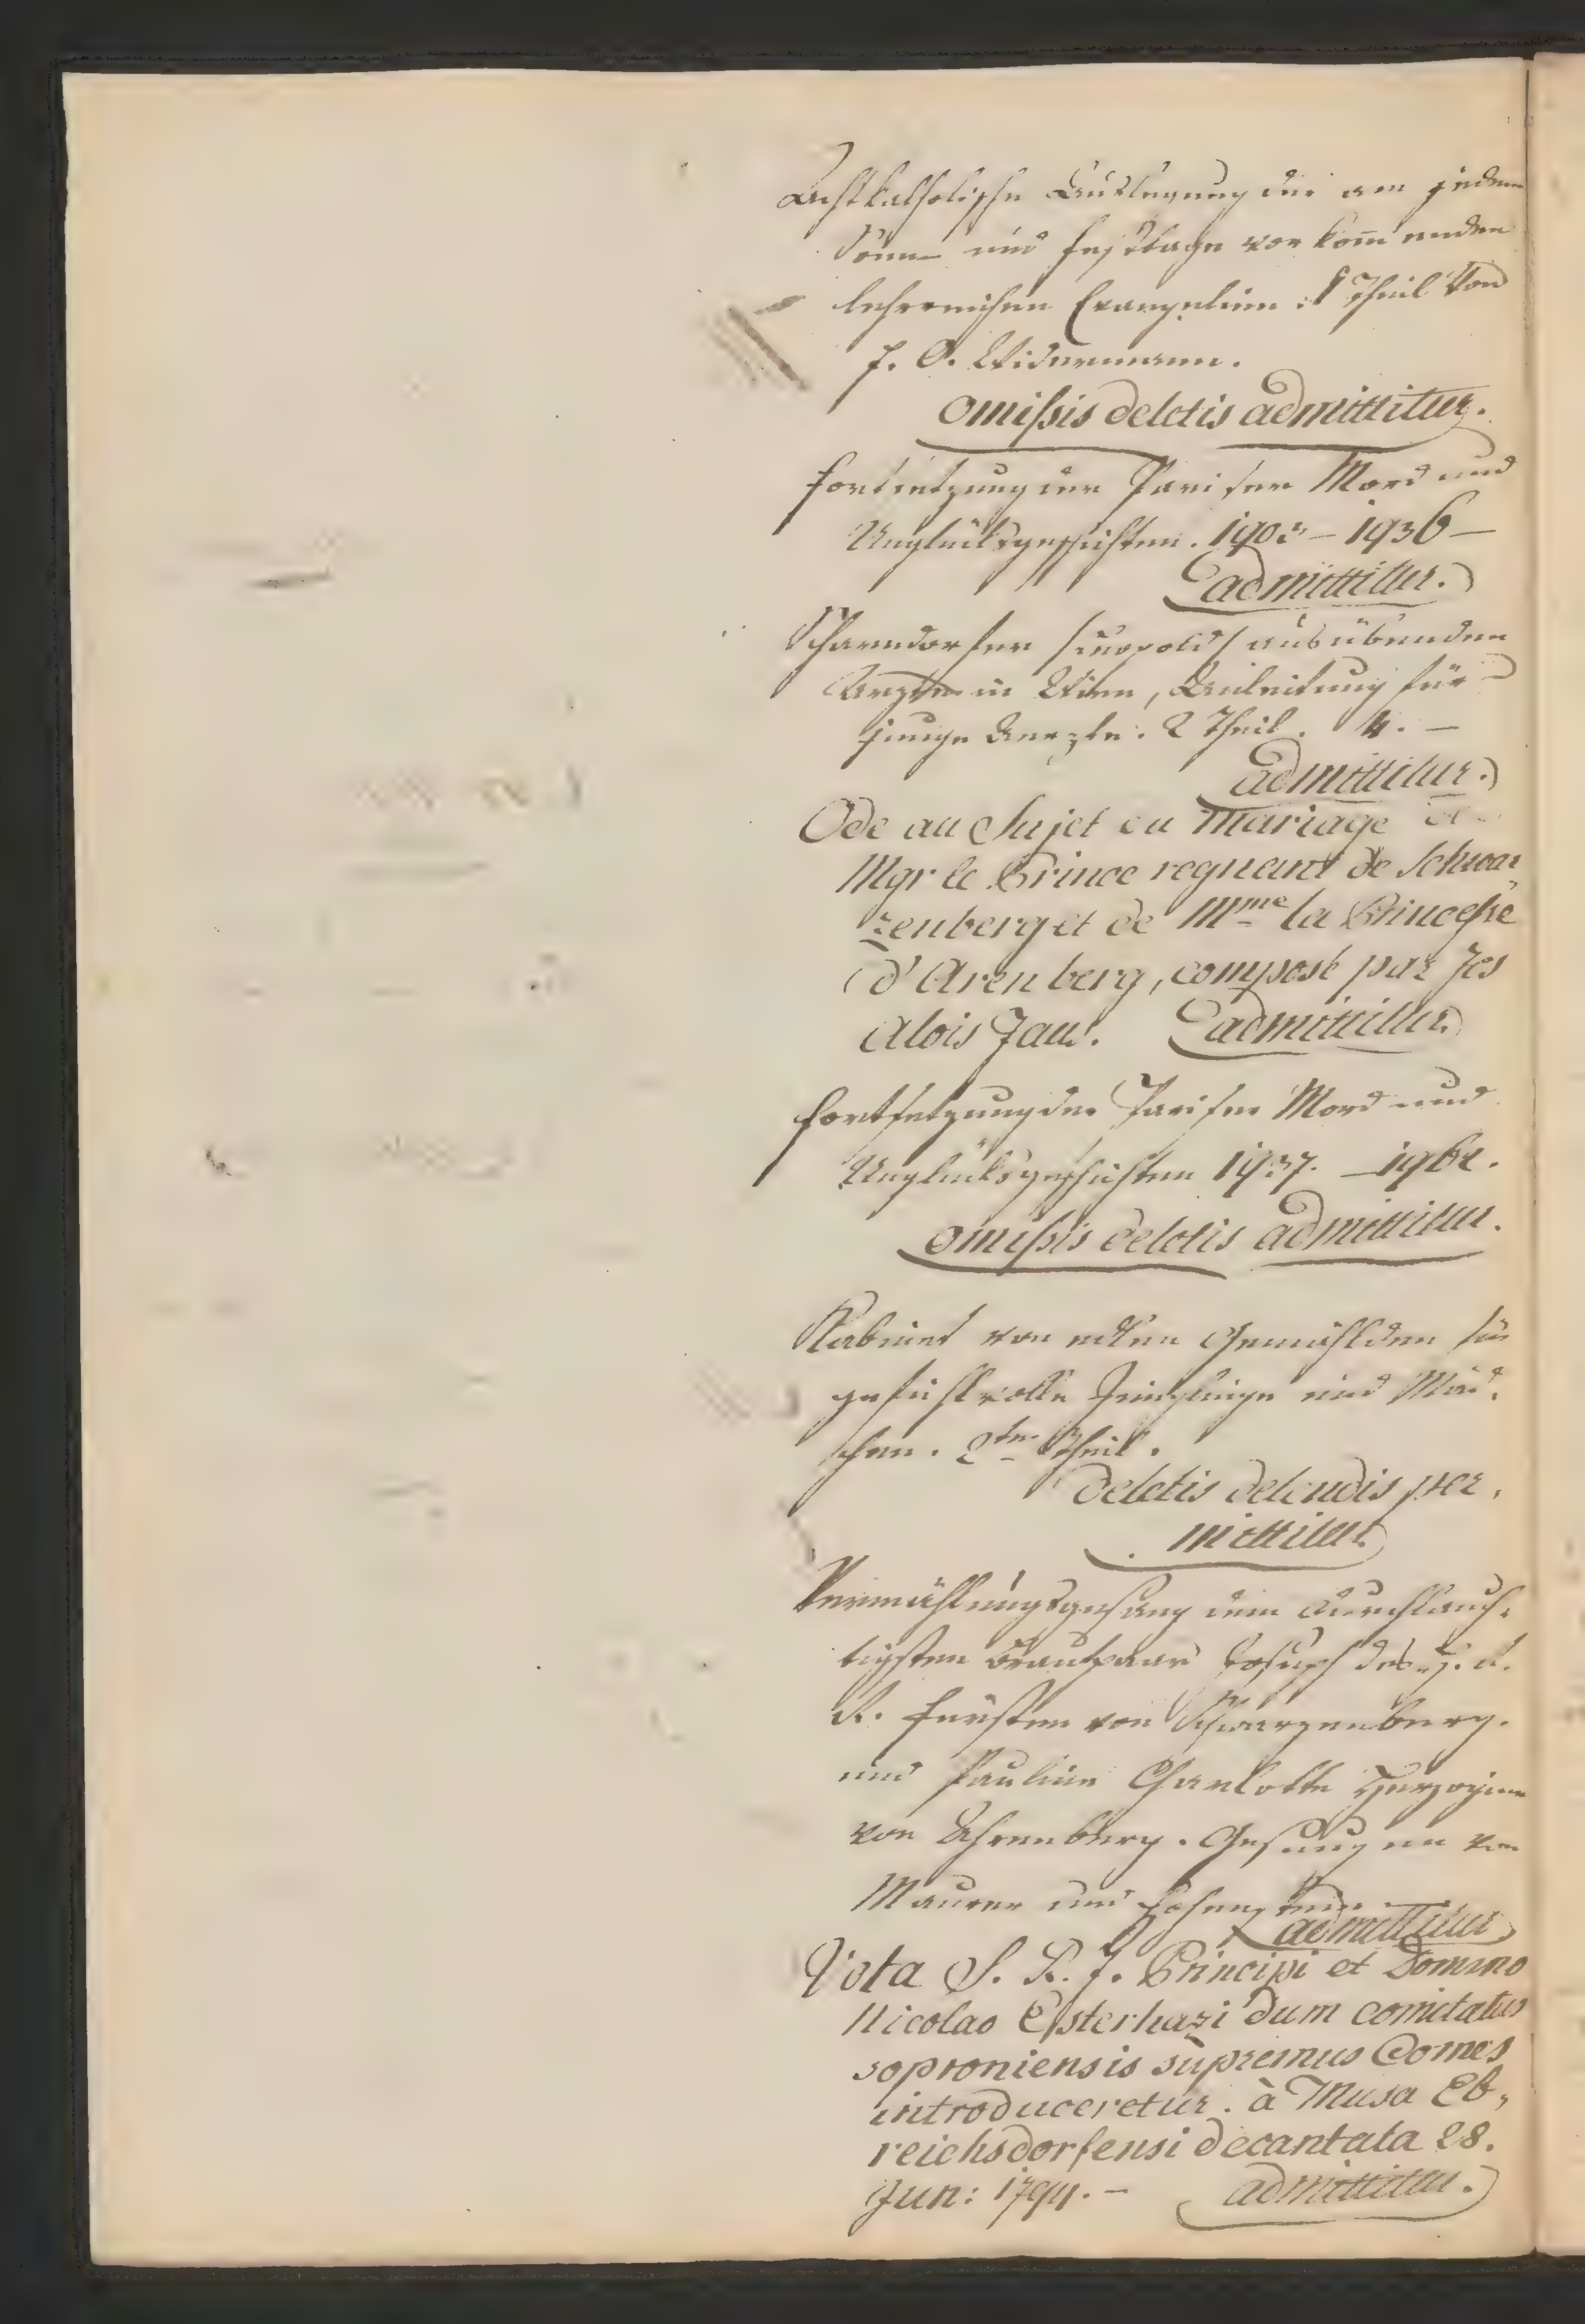 Aechtkatholische Auslegung der an jedem
Sonn- und Festtage vorkommenden
lehrreichen Evangelien. 1 Theil von
J. O. Widenmann.
omißis deletis admittitur.
Fortsetzung der Pariser Mord und
Unglücksgeschichten. 1903 – 1936 –
admittitur.
ausübenden
Arzten in Wien, Anleitung für
junge Aerzte. 2 Theil. 4. –
admittitur.
Ode au Sujet du Mariage de
Mgr le Prince regnant de Schwar,
zenberg et de Mme la Princeße
d'Arenberg, composé par
Alois admittitur.
Fortsetzung der Pariser Mord und
Unglücksgeschichten 1937. –
omißis deletis admittitur.
Kabinet von edlen Gemählden für
gefühlvolle Jünglinge und Mäd,
chen. 2ter Theil.
deletis delendis per,
mittitur.
Vermählungsgesang dem durchlauch,
tigsten Brautpaar Joseph des H. R.
R. Fürsten von Schwarzenberg.
und Pauline Charlotte Herzoginn
von Ahrenberg. Gesungen von
Maurer und
admittitur
Vota S. R. J. Principi et Domino
Nicolao Esterhazi dum comitatus
soproniensis supremus Comes
introduceretur. à Musa Eb,
reichsdorfensi decantata 28.
Jun: 1794. – admittitur.